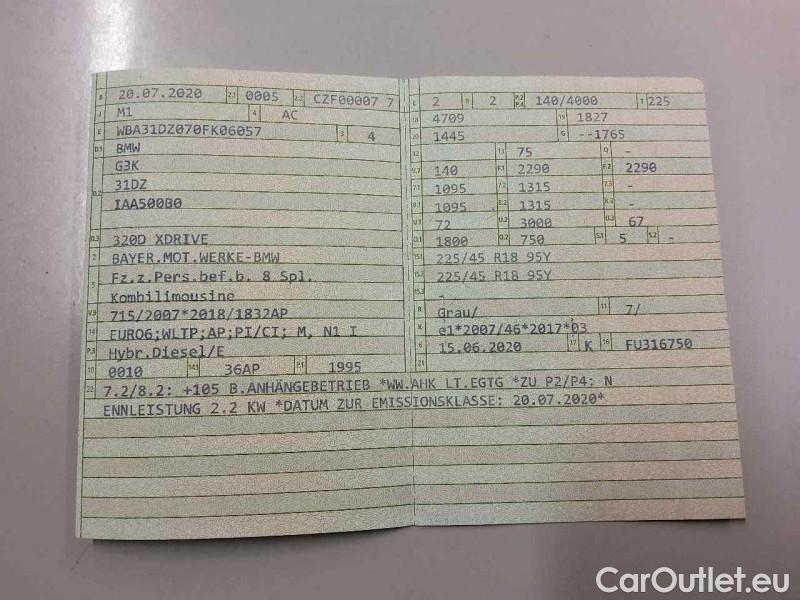 B 20.07.2020 2.1 0005 2.2 CZF00007 7
J M1 4 AC
E WBA31DZ070FK06057 3 4
D.1 BMW
G3K
D.2 31DZ
IAA500B0
D.3 320D XDRIVE
2 BAYER.MOT.WERKE-BMW
5 Fz.z.Pers.bef.b. 8 Spl.
Kombilimousine
V.9 715/2007*2018/1832AP
14 EURO6;WLTP;AP;PI/CI; M, N1 I
P.3 Hybr.Diesel/E
10 0010 14.1 36AP P.1 1995
L 2 9 2 P.2 P.4 140/4000 T 225
18 4709 19 1827
20 1445 G --1765
13 75 Q -
V.7 140 F.1 2290 F.2 2290
7.1 1095 7.2 1315 7.3 -
8.1 1095 8.2 1315 8.3 -
U.1 72 U.2 3000 U.3 67
O.1 1800 O.2 750 S.1 5 S.2 -
15.1 225/45 R18 95Y
15.2 225/45 R18 95Y
15.3 -
R Grau/ 11 7/
K e1*2007/46*2017*03
6 15.06.2020 17 K 16 FU316750
21
22 7.2/8.2: +105 B.ANHÄNGEBETRIEB *WW.AHK LT.EGTG *ZU P2/P4: N
ENNLEISTUNG 2.2 KW *DATUM ZUR EMISSIONSKLASSE: 20.07.2020*
CarOutlet.eu